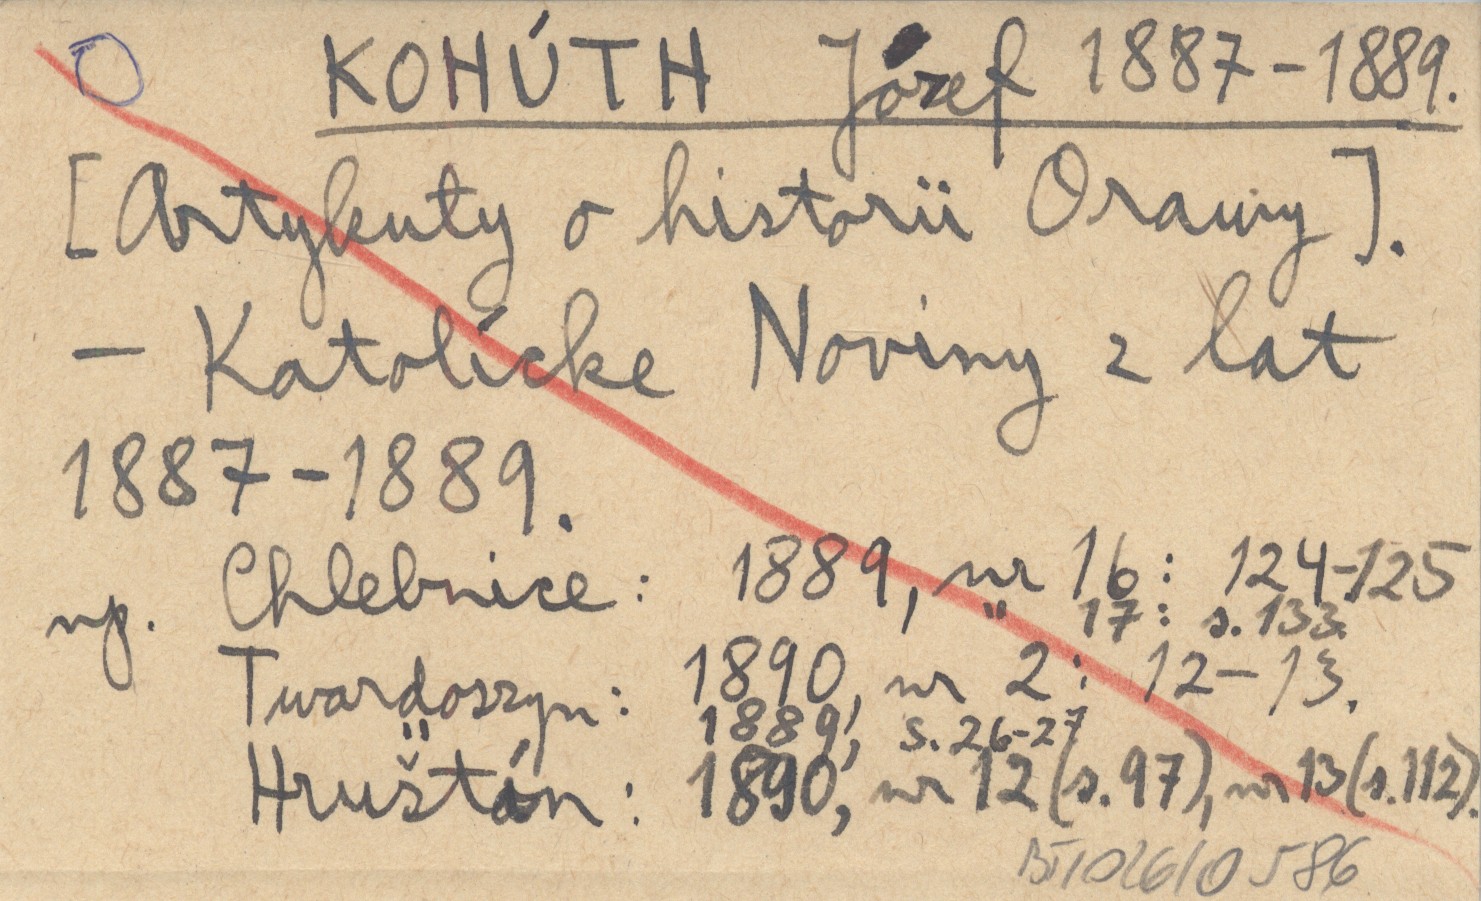 KOHÚTH Józef 1887-1889.
[Artykuły o historii Orawy].
- Katolícke Noviny z lat
1887-1889.
np. Chlebnice: 1889, nr 16: 124-125
" 17: s. 133.
Twardoszyn: 1890, nr 2: 12-13.
" 1889, s. 26-27
Hruštín: 1890, nr 12 (s. 97), nr 13 (s. 112).